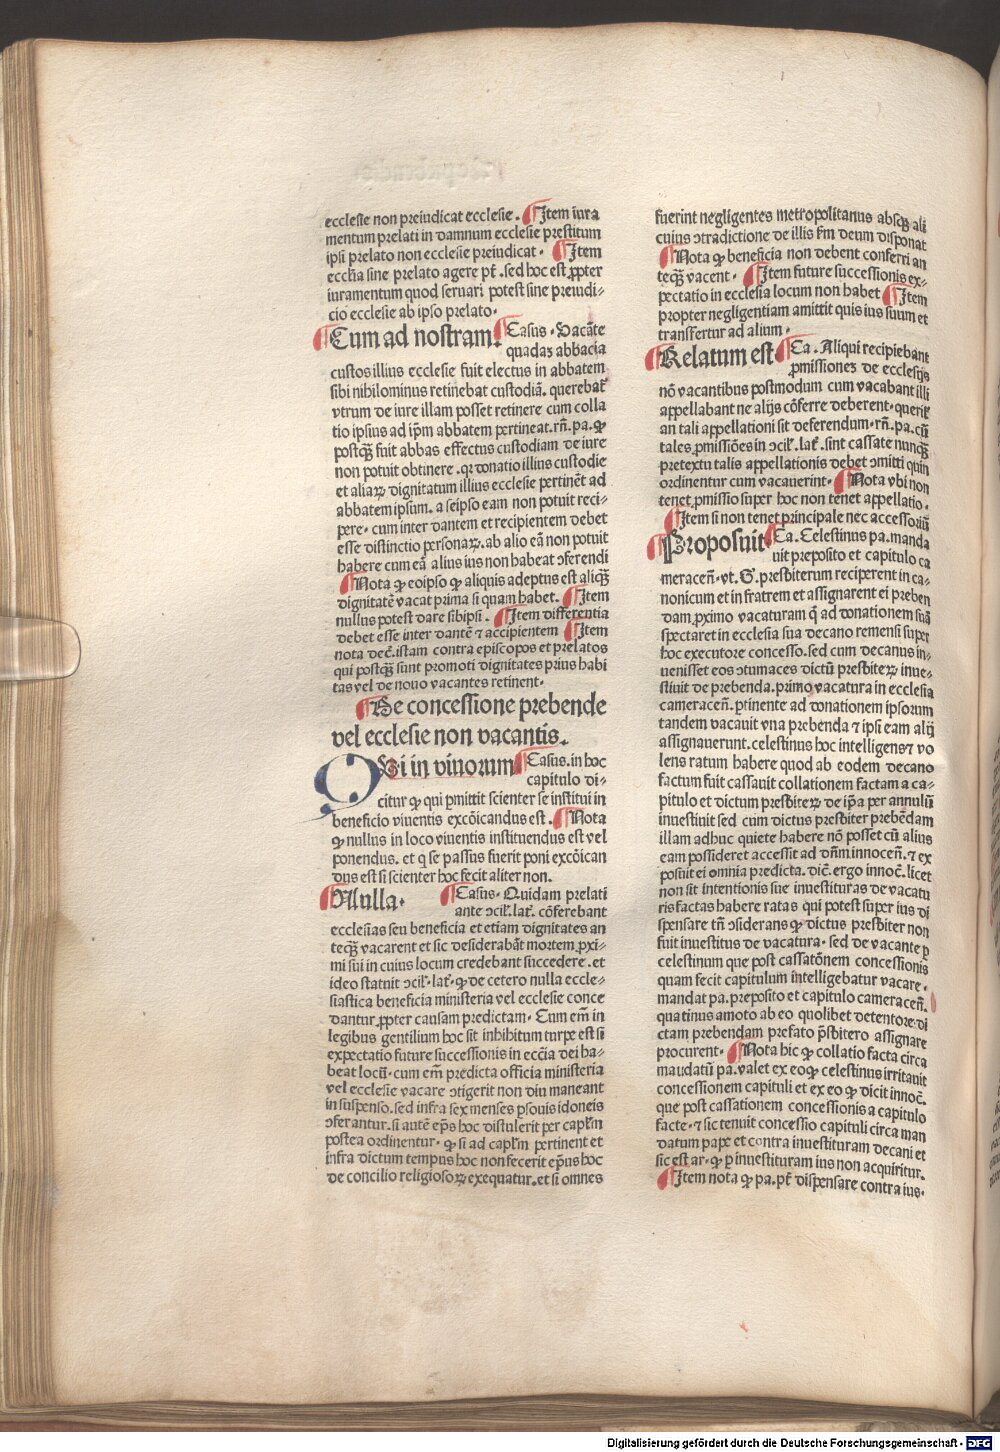 ecclesie non preiudicat ecclesie. ¶Item iura
mentum prelati in damnum ecclesie prestitum
ipsi prelato non ecclesie preiudicat. ¶Item
eccl̃ia sine prelato agere põt. sed hoc est ꝓpter
iuramentum quod seruari potest sine preiudi-
cio ecclesie ab ipso prelato.
¶Cum ad nostram. ¶Casus. Vacãte
quadaʒ abbacia
custos illius ecclesie fuit electus in abbatem
sibi nihilominus retinebat custodiã. querebat̃
vtrum de iure illam posset retinere cum colla
tio ipsius ad ip̃m abbatem pertineat. rñ. pa. ꝙ
postqᷓʒ fuit abbas effectus custodiam de iure
non potuit obtinere. qꝛ donatio illius custodie
et aliaꝝ dignitatum illius ecclesie pertinet ad
abbatem ipsum. a seipso eam non potuit reci-
pere. cum inter dantem et recipientem debet
esse distinctio personaꝝ. ab alio eã non potuit
habere cum eã alius ius non habeat ɔferendi
¶Nota ꝙ eoipso ꝙ aliquis adeptus est aliqᷓʒ
dignitatẽ vacat prima si quam habet. ¶Item
nullus potest dare sibipsi. ¶Item differentia
debet esse inter dantẽ ⁊ accipientem ¶Item
nota dec̃. istam contra episcopos et prelatos
qui postqᷓʒ sunt promoti dignitates prius habi
tas vel de nouo vacantes retinent.
¶De concessione prebende
vel ecclesie non vacantis.
QVi in viuorum ¶Casus. in hoc
capitulo di-
citur ꝙ qui ꝑmittit scienter se institui in
beneficio viuentis excõicandus est. ¶Nota
ꝙ nullus in loco viuentis instituendus est vel
ponendus. et q se passus fuerit poni excõican
dus est si scienter hoc fecit aliter non.
¶Nulla. ¶Casus. Quidam prelati
ante ɔcil̃. lat̃. cõferebant
ecclesias seu beneficia et etiam dignitates an
teqᷓʒ vacarent et sic desiderabãt mortem ꝓxi-
mi sui in cuius locum credebant succedere. et
ideo statuit ɔcil̃. lat̃. ꝙ de cetero nulla eccle-
siastica beneficia ministeria vel ecclesie conce
dantur ꝓpter causam predictam. Cum em̃ in
legibus gentilium hoc sit inhibitum turpe est si
expectatio future successionis in ecc̃ia dei ha-
beat locũ. cum em̃ predicta officia ministeria
vel ecclesie vacare ɔtigerit non diu maneant
in suspenso. sed infra sex menses ꝑsonis idoneis
ɔferantur. si autẽ ep̃s hoc distulerit per capl̃m
postea ordinentur. ꝙ si ad capl̃m pertinent et
infra dictum tempus hoc non fecerit ep̃us hoc
de concilio religiosoꝝ exequatur. et si omnes
fuerint negligentes metropolitanus absqʒ ali
cuius ɔtradictione de illis fm̃ deum disponat
¶Nota ꝙ beneficia non debent conferri an
teqᷓʒ vacent. ¶Item future successionis ex-
pectatio in ecclesia locum non habet ¶Item
propter negligentiam amittit quis ius suum et
transfertur ad alium.
¶Relatum est ¶Ca. Aliqui recipiebant
ꝓmissioneʒ de ecclesijs
nõ vacantibus postmodum cum vacabant illi
appellabant ne alijs cõferre deberent. querit̃
an tali appellationi sit deferendum. rñ. pa. cũ
tales ꝓmissiões in ɔcil̃. lat̃. sint cassate nunqᷓʒ
pretextu talis appellationis debet ɔmitti quin
ordinentur cum vacauerint. ¶Nota vbi non
tenet ꝓmissio super hoc non tenet appellatio.
¶Item si non tenet principale nec accessoriũ
¶Proposuit ¶Ca. Celestinus pa. manda
uit preposito et capitulo ca
meraceñ. vt. G. presbiterum reciperent in ca-
nonicum et in fratrem et assignarent ei preben
dam ꝓximo vacaturam q̃ ad donationem suã
spectaret in ecclesia sua decano remensi super
hoc executore concesso. sed cum decanus in-
uenisset eos ɔtumaces dictũ presbiteꝝ inue-
stiuit de prebenda. primo vacatura in ecclesia
cameraceñ. ꝑtinente ad donationem ipsorum
tandem vacauit vna prebenda ⁊ ipsi eam alij
assignauerunt. celestinus hoc intelligens ⁊ vo
lens ratum habere quod ab eodem decano
factum fuit cassauit collationem factam a ca-
pitulo et dictum presbiteꝝ de ip̃a per annulũ
inuestiuit sed cum dictus presbiter prebẽdam
illam adhuc quiete habere nõ posset cũ alius
eam possideret accessit ad dñm. innoceñ. ⁊ ex
posuit ei omnia predicta. dic̃. ergo innoc̃. licet
non sit intentionis sue inuestituras de vacatu
ris factas habere ratas qui potest super ius di
spensare tñ ɔsiderans ꝙ dictus presbiter non
fuit inuestitus de vacatura. sed de vacante ꝑ
celestinum que post cassatõnem concessionis
quam fecit capitulum intelligebatur vacare.
mandat pa. preposito et capitulo cameraceñ.
quatinus amoto ab eo quolibet detentore. di
ctam prebendam prefato p̃sbitero assignare
procurent. ¶Nota hic ꝙ collatio facta circa
mandatũ pa. valet ex eo ꝙ celestinus irritauit
concessionem capituli et ex eo ꝙ dicit innoc̃.
que post cassationem concessionis a capitulo
facte. ⁊ sic tenuit concessio capituli circa man
datum pape et contra inuestituram decani et
sic est ar. ꝙ ꝑ inuestituram ius non acquiritur.
¶Item nota ꝙ pa. põt dispensare contra ius.
Digitalisierung gefördert durch die Deutsche Forschungsgemeinschaft - DFG